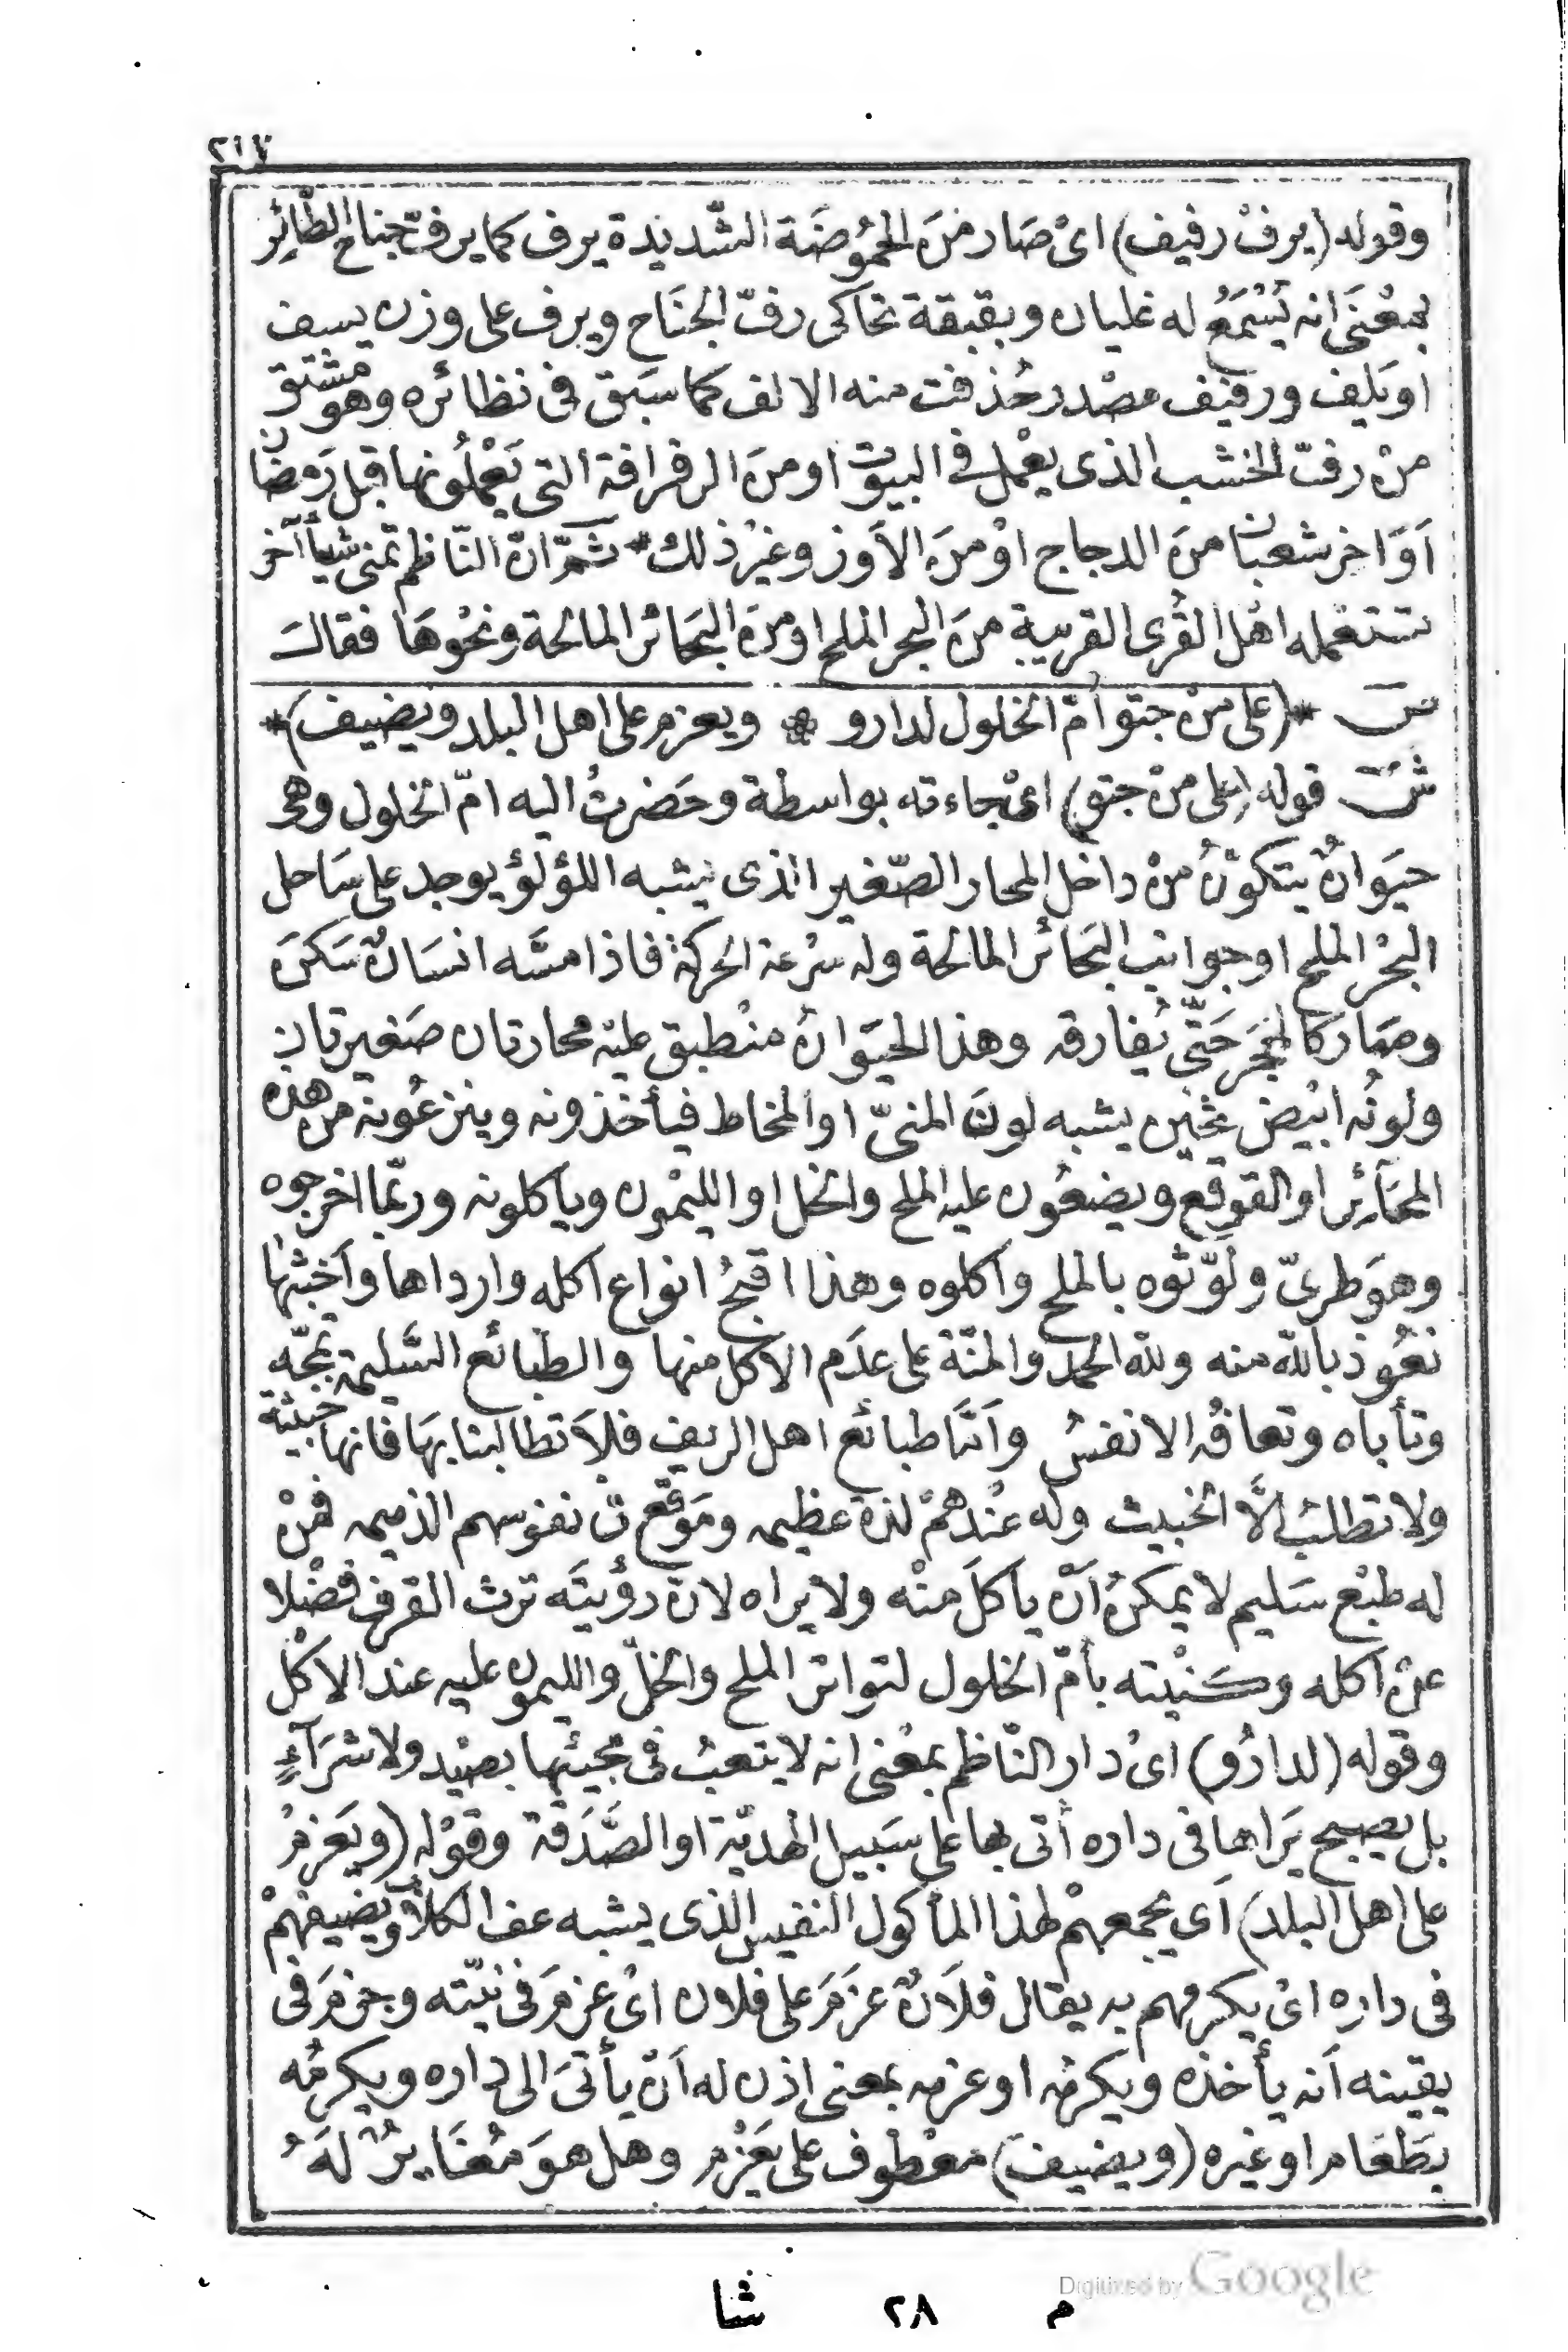 ٢١٧
وقوله (يرفّ رفيف) اىْ صَار منَ الحمُوضَة الشّديدة يرف كما يرفّ جناح الطّائِر
بمعْنَى انه يُسْمَعُ له غليان وبقبقة تحاكى رفّ الجنَاح ويرف على وزن يسف
او يَلِف ورفيف مصْدر حُذفت منه الالف كما سَبَق فى نظائره وهو مشتق
منْ رفّ الخشب الذى يعْمل فى البيوت او منَ الرفرافة التى يَعْملُونها قبل رَمضان
اَوَاخر شعبان منَ الدجاج اوْ منَ الاَوز وغيْر ذلك * ثمّ انّ النّاظم تمنى شيأً آخر
تستعْمله اهْل القُرى القريبة منَ البحر الملح او منَ البَحَائر المالحة ونحْوهَا فقال
صَ * (على منْ جتو اُمّ الخلول لدارو * ويعزم على اهل البلد ويضيف) *
شَ قوله (على منْ جتو) اىْ جاءته بواسطة وحَضرتْ اليه امّ الخلول وهى
حيَوانٌ يتكوّنُ منْ داخل المحار الصّغير الذى يشبه اللؤلؤ يوجد على سَاحل
البحْر الملح او جوانب البَحائر المالحة وله سُرْعة الحركة فاذا مسَّه انسَانٌ سَكَنَ
وصَار كالحجَر حَتّى يُفارقه وهذا الحيَوانُ منْطبق عليْه محارتان صَغيرتان
ولونُه ابْيض ثخين يشبه لونَ المنىّ او المخاط فيأخذونه وينزعُونه من هذه
المحَآئِر او القوقع ويضعُون عليه الملح والخل او الليْمون وياكلونه وربّما اخرجوه
وهوَ طرىّ ولَوّثوه بالملح وأكلوه وهذا اقبحُ انواع اكله وارداها وأخبثها
نعُوذ بالله منه ولله الحمْد والمنّة على عدَم الاكل منها والطّبائع السَّليمة تمجّه
وتأباه وتعافُه الانفسُ وأمَّا طبائع اهل الريف فلاَ تطالبنا بهَا فانها خبيثة
ولا تطلبُ الاَّ الخبيث وله عنْدهمْ لذة عظيمه ومَوْقع فى نفوسهم الذميمه فمنْ
له طبْع سَليم لا يمكنُ أنْ ياكلَ منْه ولا يراه لانّ رؤيتَه ترث القرف فضْلا
عنْ اكله وكنْيته بأمّ الخلول لتواتر الملح والخلّ والليمون عليه عند الاكْل
وقوله (لدارُو) اىْ دار النّاظم بمعْنى انه لا يتعبُ فى مجيئها بصيْد ولا شرَآءٍ
بل يصبح يَراها فى داره أتى بها على سَبيل الهديّة او الصَّدَقة وقوْله (ويَعزمْ
على اهل البلد) أى يجمعهمْ لهذا المأكول النفيس الذى يشبه عف الكلاب ويضيفهمْ
فى داره اىْ يكرمهم به يقال فلاَنٌ عزَمَ على فلان اىْ عزمَ فى نيّته وجزمَ فى
يقينه أنه يأخذه ويكرمُه او عزمه بمعنى اذن له اَنْ يأتىَ الى داره ويكرمُه
بطَعَام او غيره (ويضيف) معْطوف على يَعْزم وهل هوَ مُغَايرٌ لهَ
م ٢٨ شا
Digitized by Google